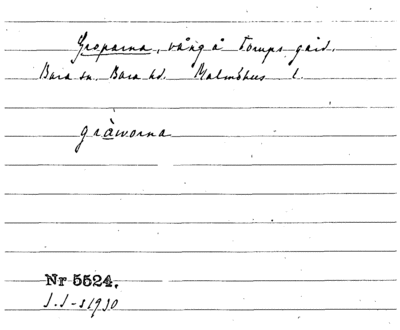 Groparna, vång å Torups gård.
Bara sn. Bara hd. Malmöhus l.
gràworna
Nr 5524.
1930